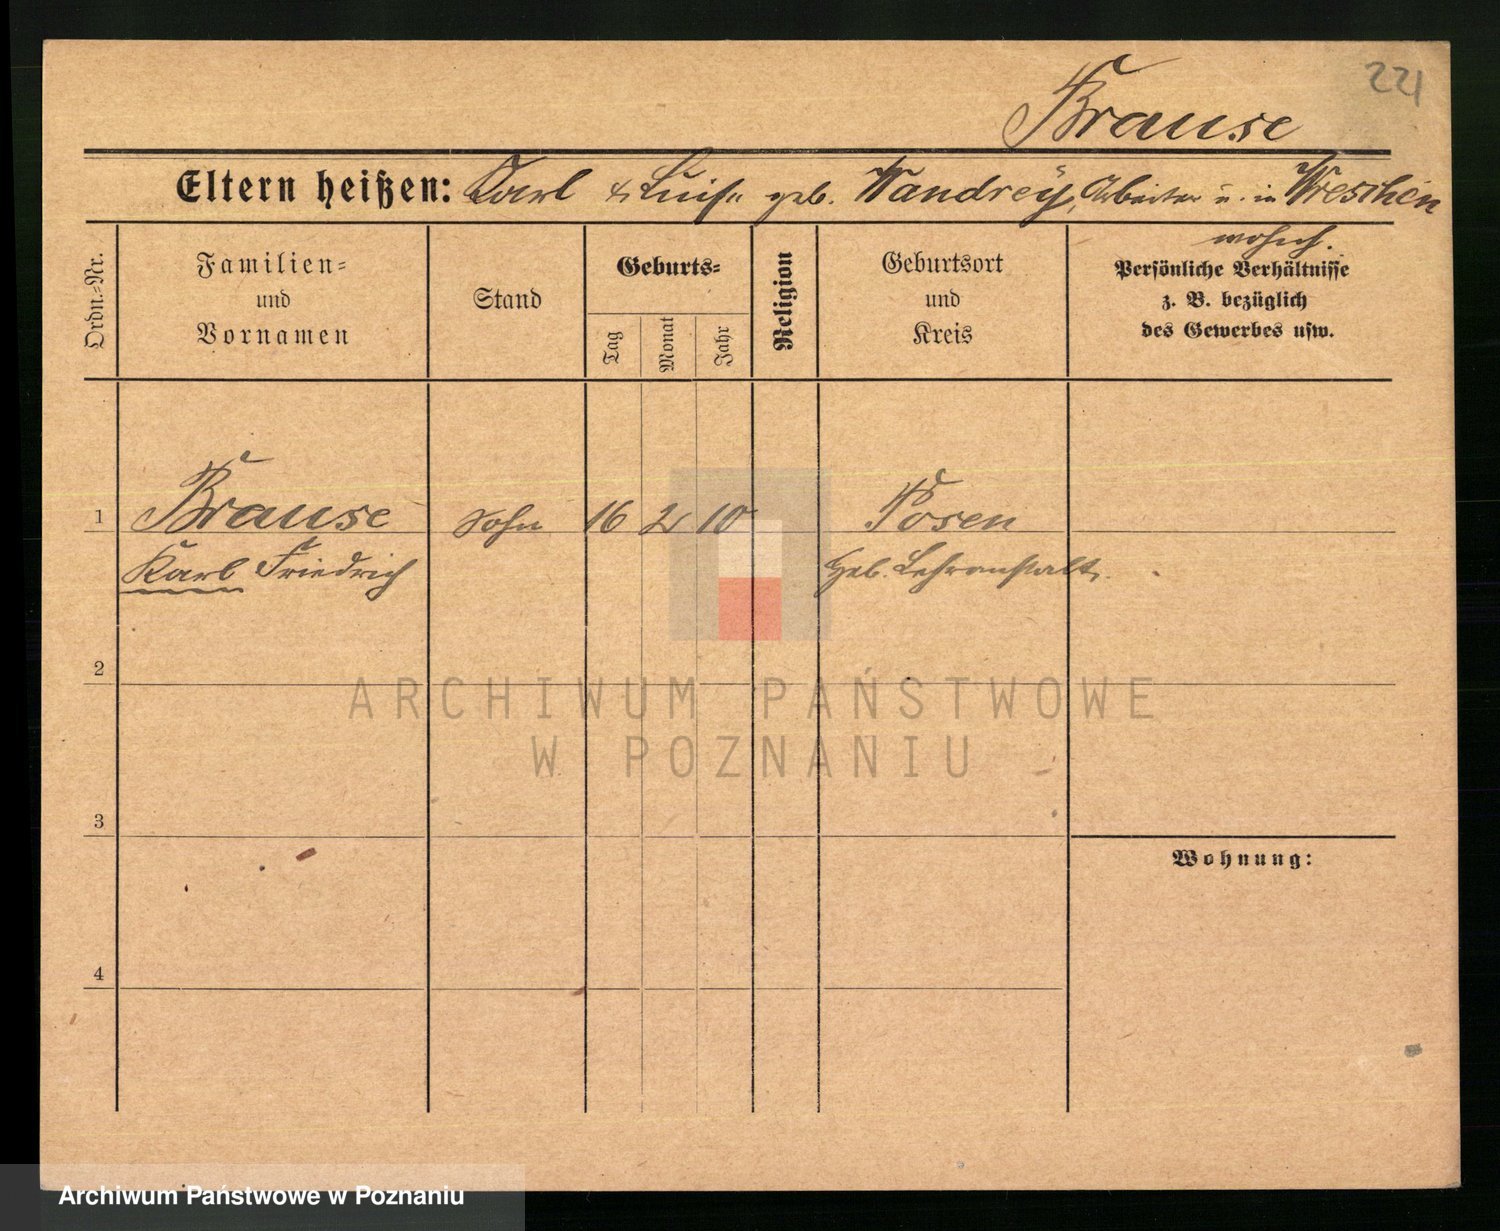 221
Brause
Eltern heißen: Karl & Luise geb. Wandrey, Arbeiter u. in Wreschen
wohnh.
Ordn.=Nr.
Familien=
und
Vornamen
Stand
Geburts=
Tag
Monat
Jahr
Religion
Geburtsort
und
Kreis
Persönliche Verhältnisse
z. B. bezüglich
des Gewerbes usw.
1 Brause Sohn 16 2 10 Posen
Karl Friedrich Heb. Lehranstalt.
2
3
4
Wohnung:
ARCHIWUM PAŃSTWOWE
W POZNANIU
Archiwum Państwowe w Poznaniu